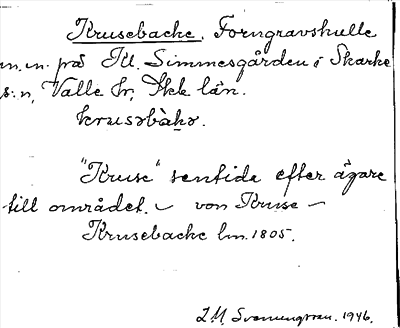 Krusebacke. Forngravskulle
m.m. på Kl. Simmesgården i Skarke
s:n, Valle hr, Skb. län.
krusəbàkə.
"Kruse" sentida efter ägare
till området. – von Kruse –
Krusebacke lm. 1805.
1946.